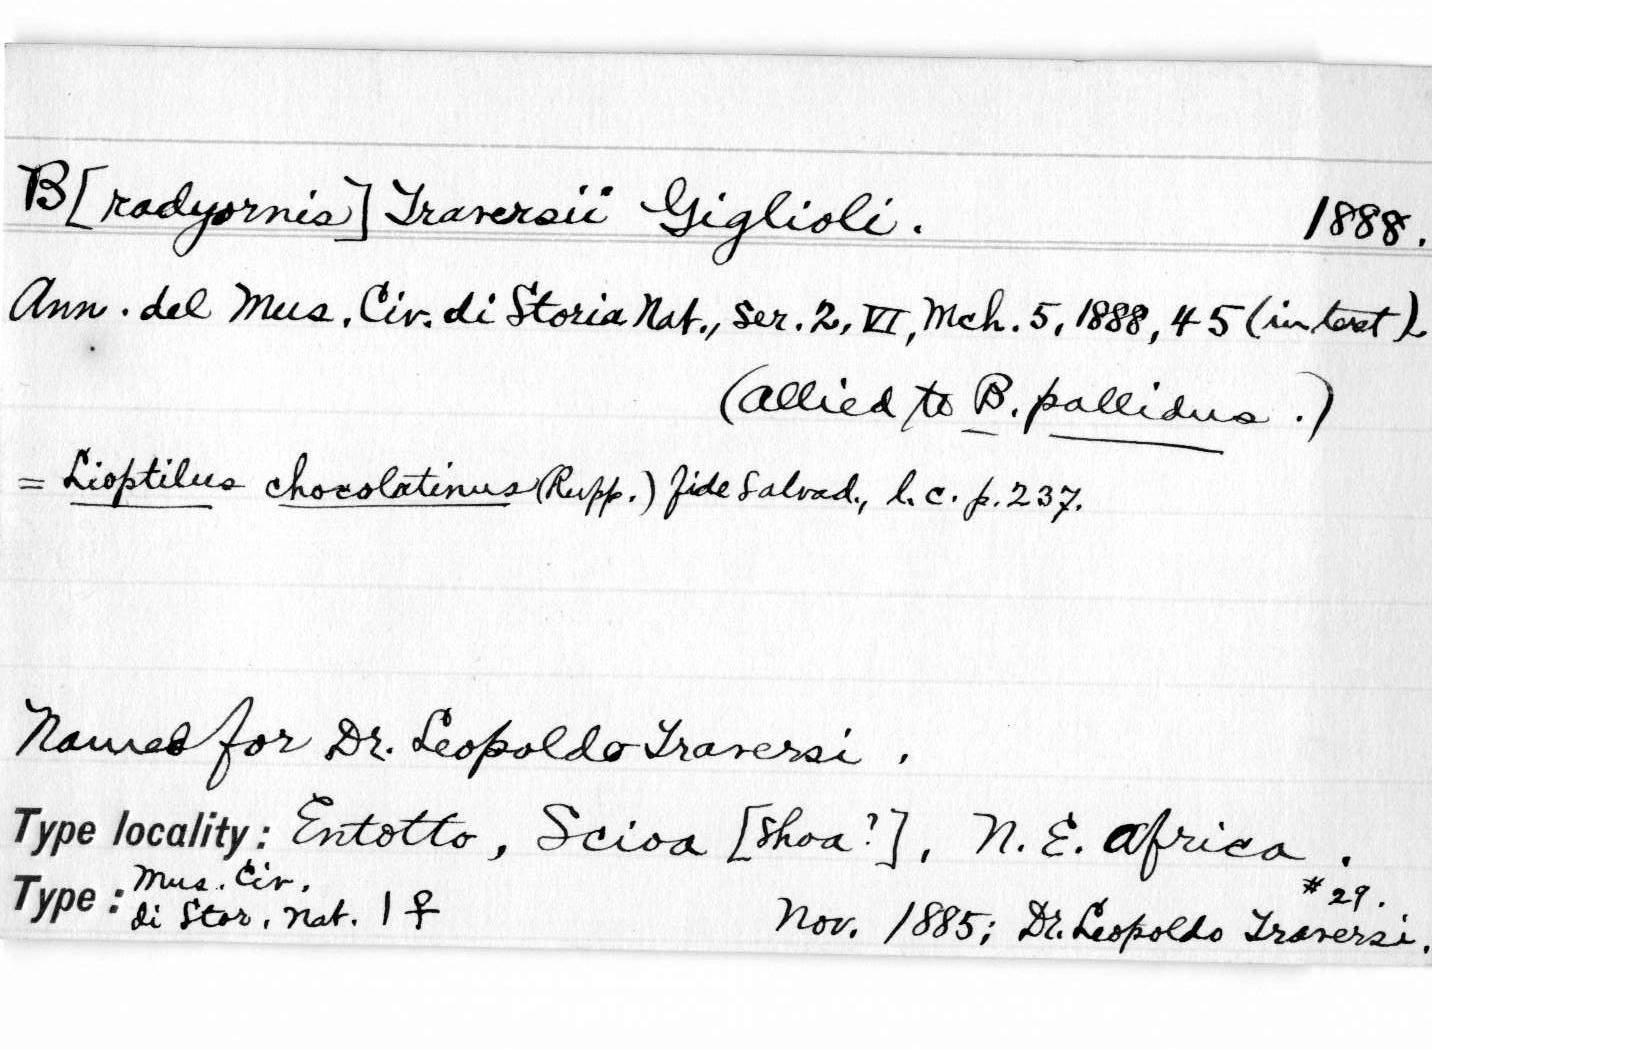 B[radyornis] Traversii Giglioli. 1888.
Ann. del Mus. Civ. di Storia Nat., ser. 2, VI, Mch. 5, 1888, 45 (in text).
(allied to B. pallidus.)
= Lioptilus chocolatinus (Rupp.) fide Salvad., l.c. p. 237.
Named for Dr. Leopoldo Traversi.
Type locality: Entotto, Scioa [Shoa?], N. E. Africa.
Type: Mus. Civ. di Stor. Nat. 1 ♀ #29.
Nov. 1885; Dr. Leopoldo Traversi.